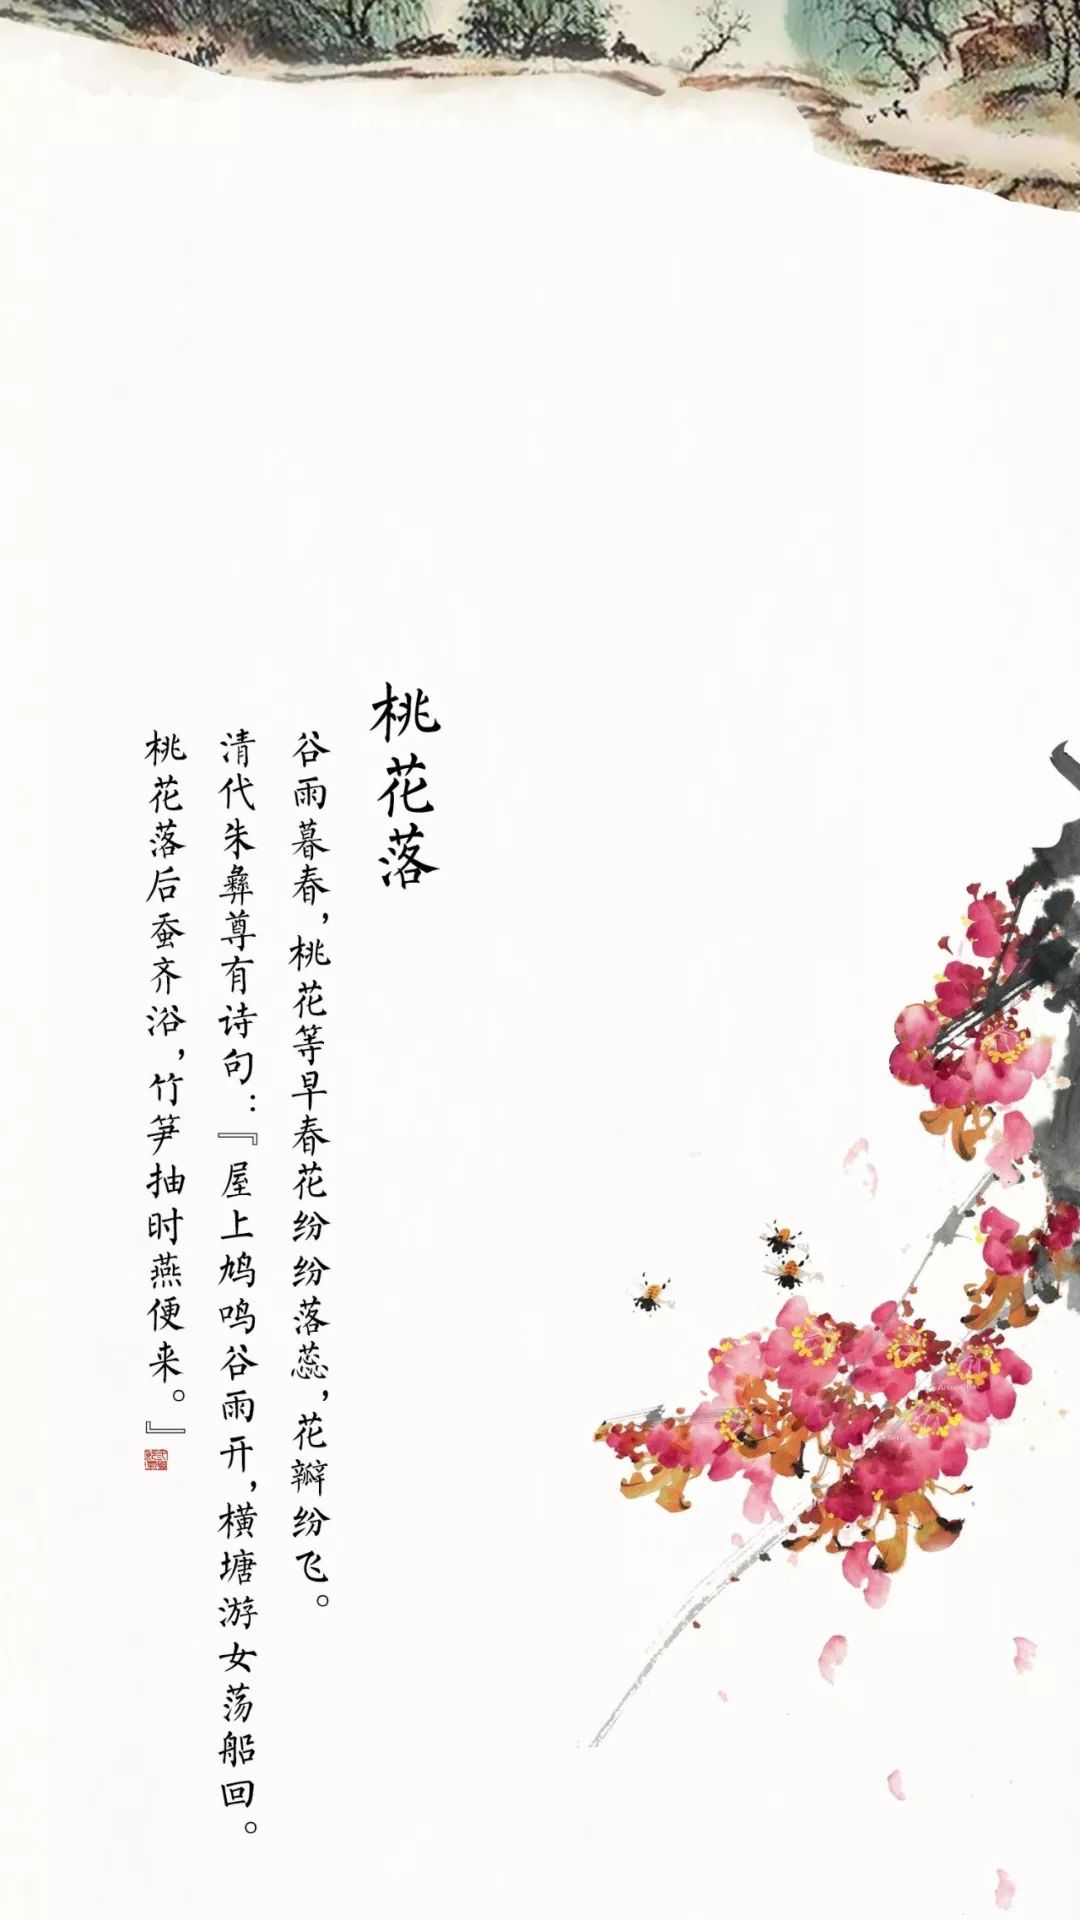 桃花落
谷雨暮春，桃花等早春花纷纷落蕊，花瓣纷飞。
清代朱彝尊有诗句：『屋上鸠鸣谷雨开，横塘游女荡船回。
桃花落后蚕齐浴，竹笋抽时燕便来。』